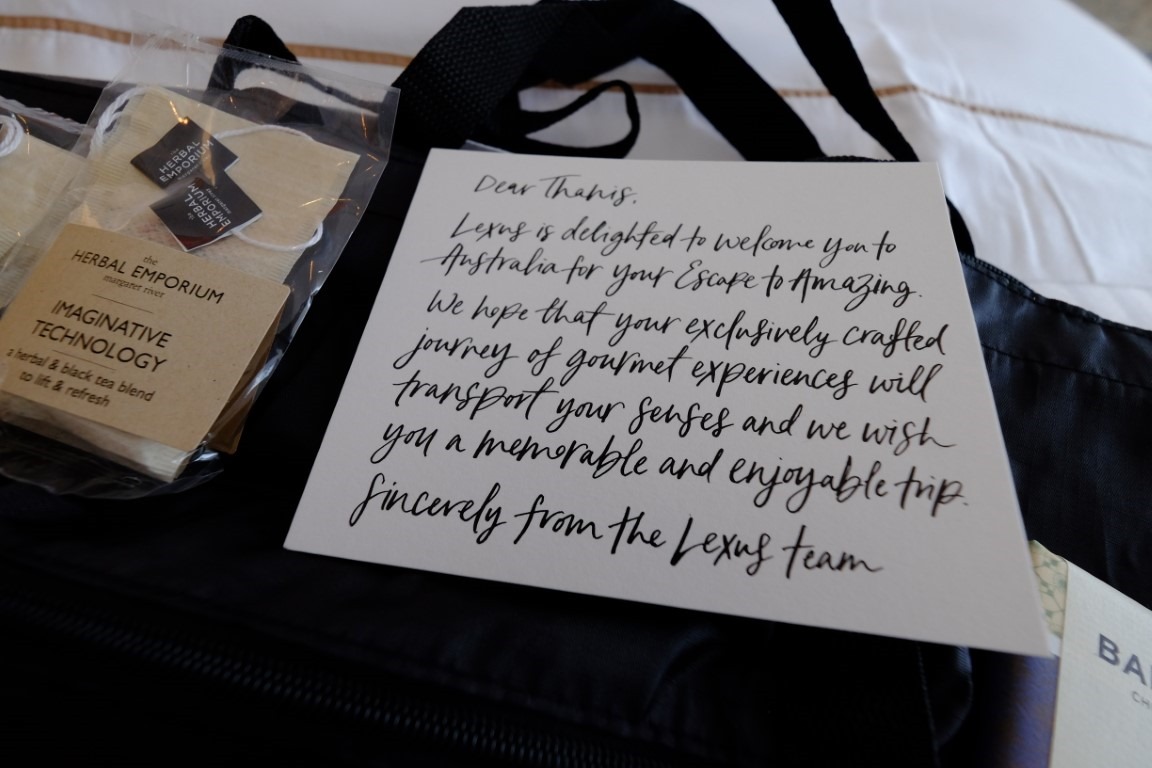 the
HERBAL
EMPORIUM
the
HERBAL
EMPORIUM
margaret river
the
HERBAL EMPORIUM
margaret river
IMAGINATIVE
TECHNOLOGY
a herbal & black tea blend
to lift & refresh
Dear Thanis,
Lexus is delighted to welcome you to
Australia for your Escape to Amazing.
We hope that your exclusively crafted
journey of gourmet experiences will
transport your senses and we wish
you a memorable and enjoyable trip.
Sincerely from the Lexus team
BA
CH